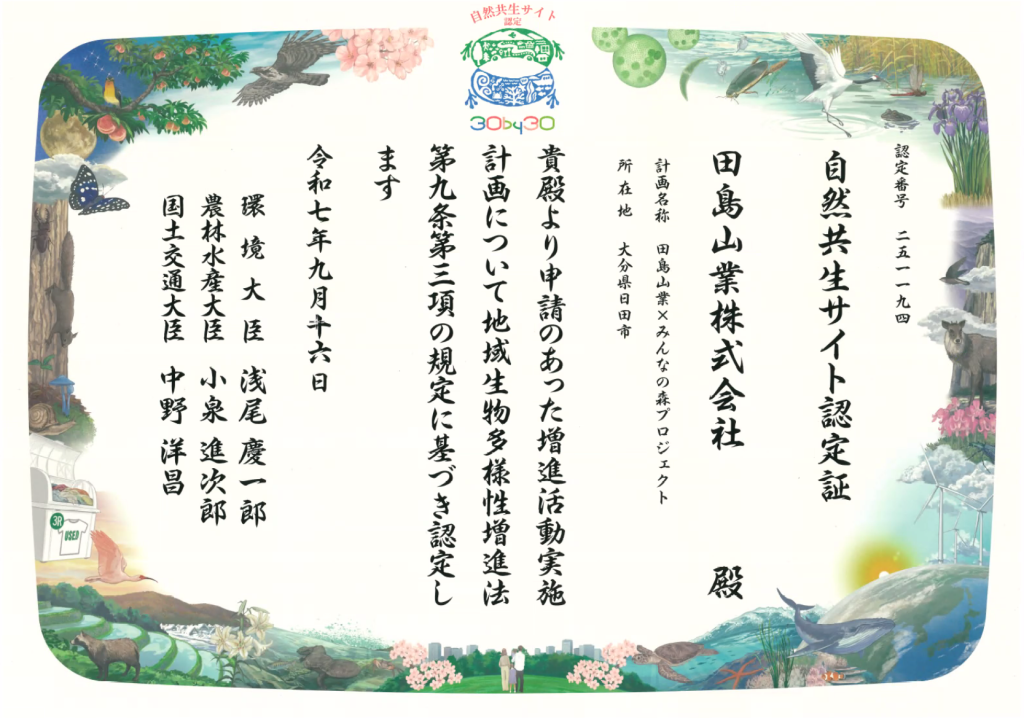 自然共生サイト
認定
30by30
認定番号 二五一一九四
自然共生サイト認定証
田島山業株式会社 殿
計画名称 田島山業×みんなの森プロジェクト
所在地 大分県日田市
貴殿より申請のあった増進活動実施
計画について地域生物多様性増進法
第九条第三項の規定に基づき認定し
ます
令和七年九月十六日
環境大臣 浅尾慶一郎
農林水産大臣 小泉進次郎
国土交通大臣 中野洋昌
3R
USED